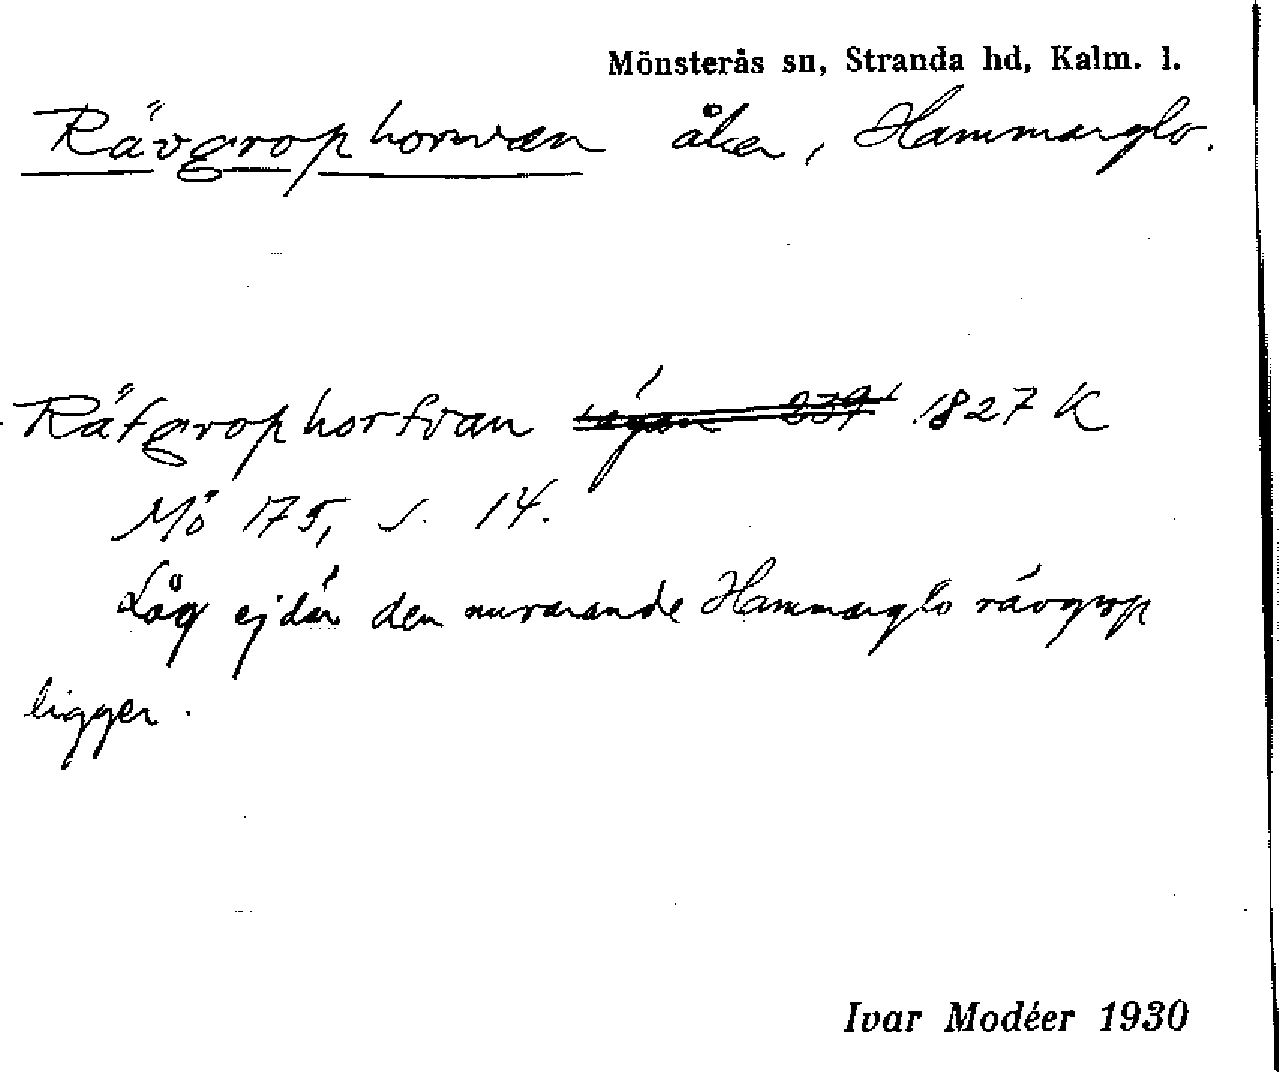 Mönsterås sn, Stranda hd, Kalm. l.
Rävgrophorvan åker, Hammarglo.
Räfgrophorfvan 1827 K
Mö 175, s. 14.
Låg ej där den nuvarande Hammarglo rävgrop
ligger.
Ivar Modéer 1930